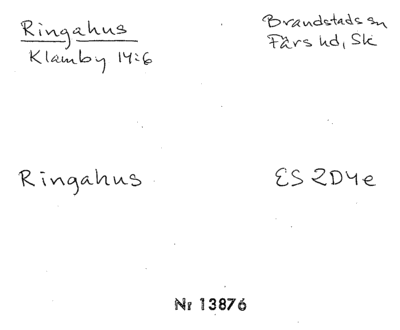 Ringahus
Klamby 14:6
Brandstads sn
Färs hd, Sk
Ringahus
ES 2D4e
Nr 13876